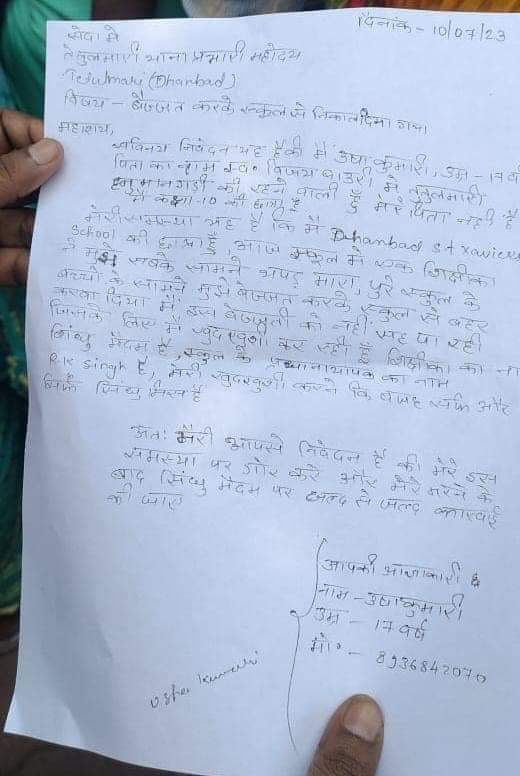 दिनांक - 10/07/23
सेवा मे
तेतुलमारी थाना प्रभारी महोदय
Tetulmari (Dhanbad)
विषय - बेज्जत करके स्कूल से निकाल दिया गया
महाशय,
सविनय निवेदन यह है की मैं उषा कुमारी, उम्र - 17 व
पिता का नाम स्व० विजय बाउरी, मे तेतुलमारी
हनुमानगढ़ी की रहने वाली हूँ मेरे पिता नही है
मै कक्षा-10 की छात्रा हूँ
मेरी समस्या यह है कि मैं Dhanbad st xaviers
School की छात्रा हूँ आज स्कूल में एक शिक्षीका
ने मुझे सबके सामने थपड़ मारा, पुरे स्कूल के
बच्चो के सामने मुझे बेज्जत करके स्कूल से बहर
करवा दिया मैं इस बेज्जती को नही सह पा रही
जिसके लिए मैं खुदखुशी कर रही हूँ शिक्षीका का ना
सिंधु मैदम है, स्कूल के प्रधानाधापक का नाम
R.K singh है, मेरी खुदखुशी करने कि वजह सर्फ और
सिर्फ सिंधु मिस है
अतः मेरी आपसे निवेदन है की मेरे इस
समस्या पर गोर करे और मेरे मरने के
बाद सिंधु मेदम पर जल्द से जल्द कारवाई
की जाए
आपकी आज्ञाकारी
नाम - उषा कुमारी
उम्र - 17 वर्ष
मो० - 8936842070
Usha kumari